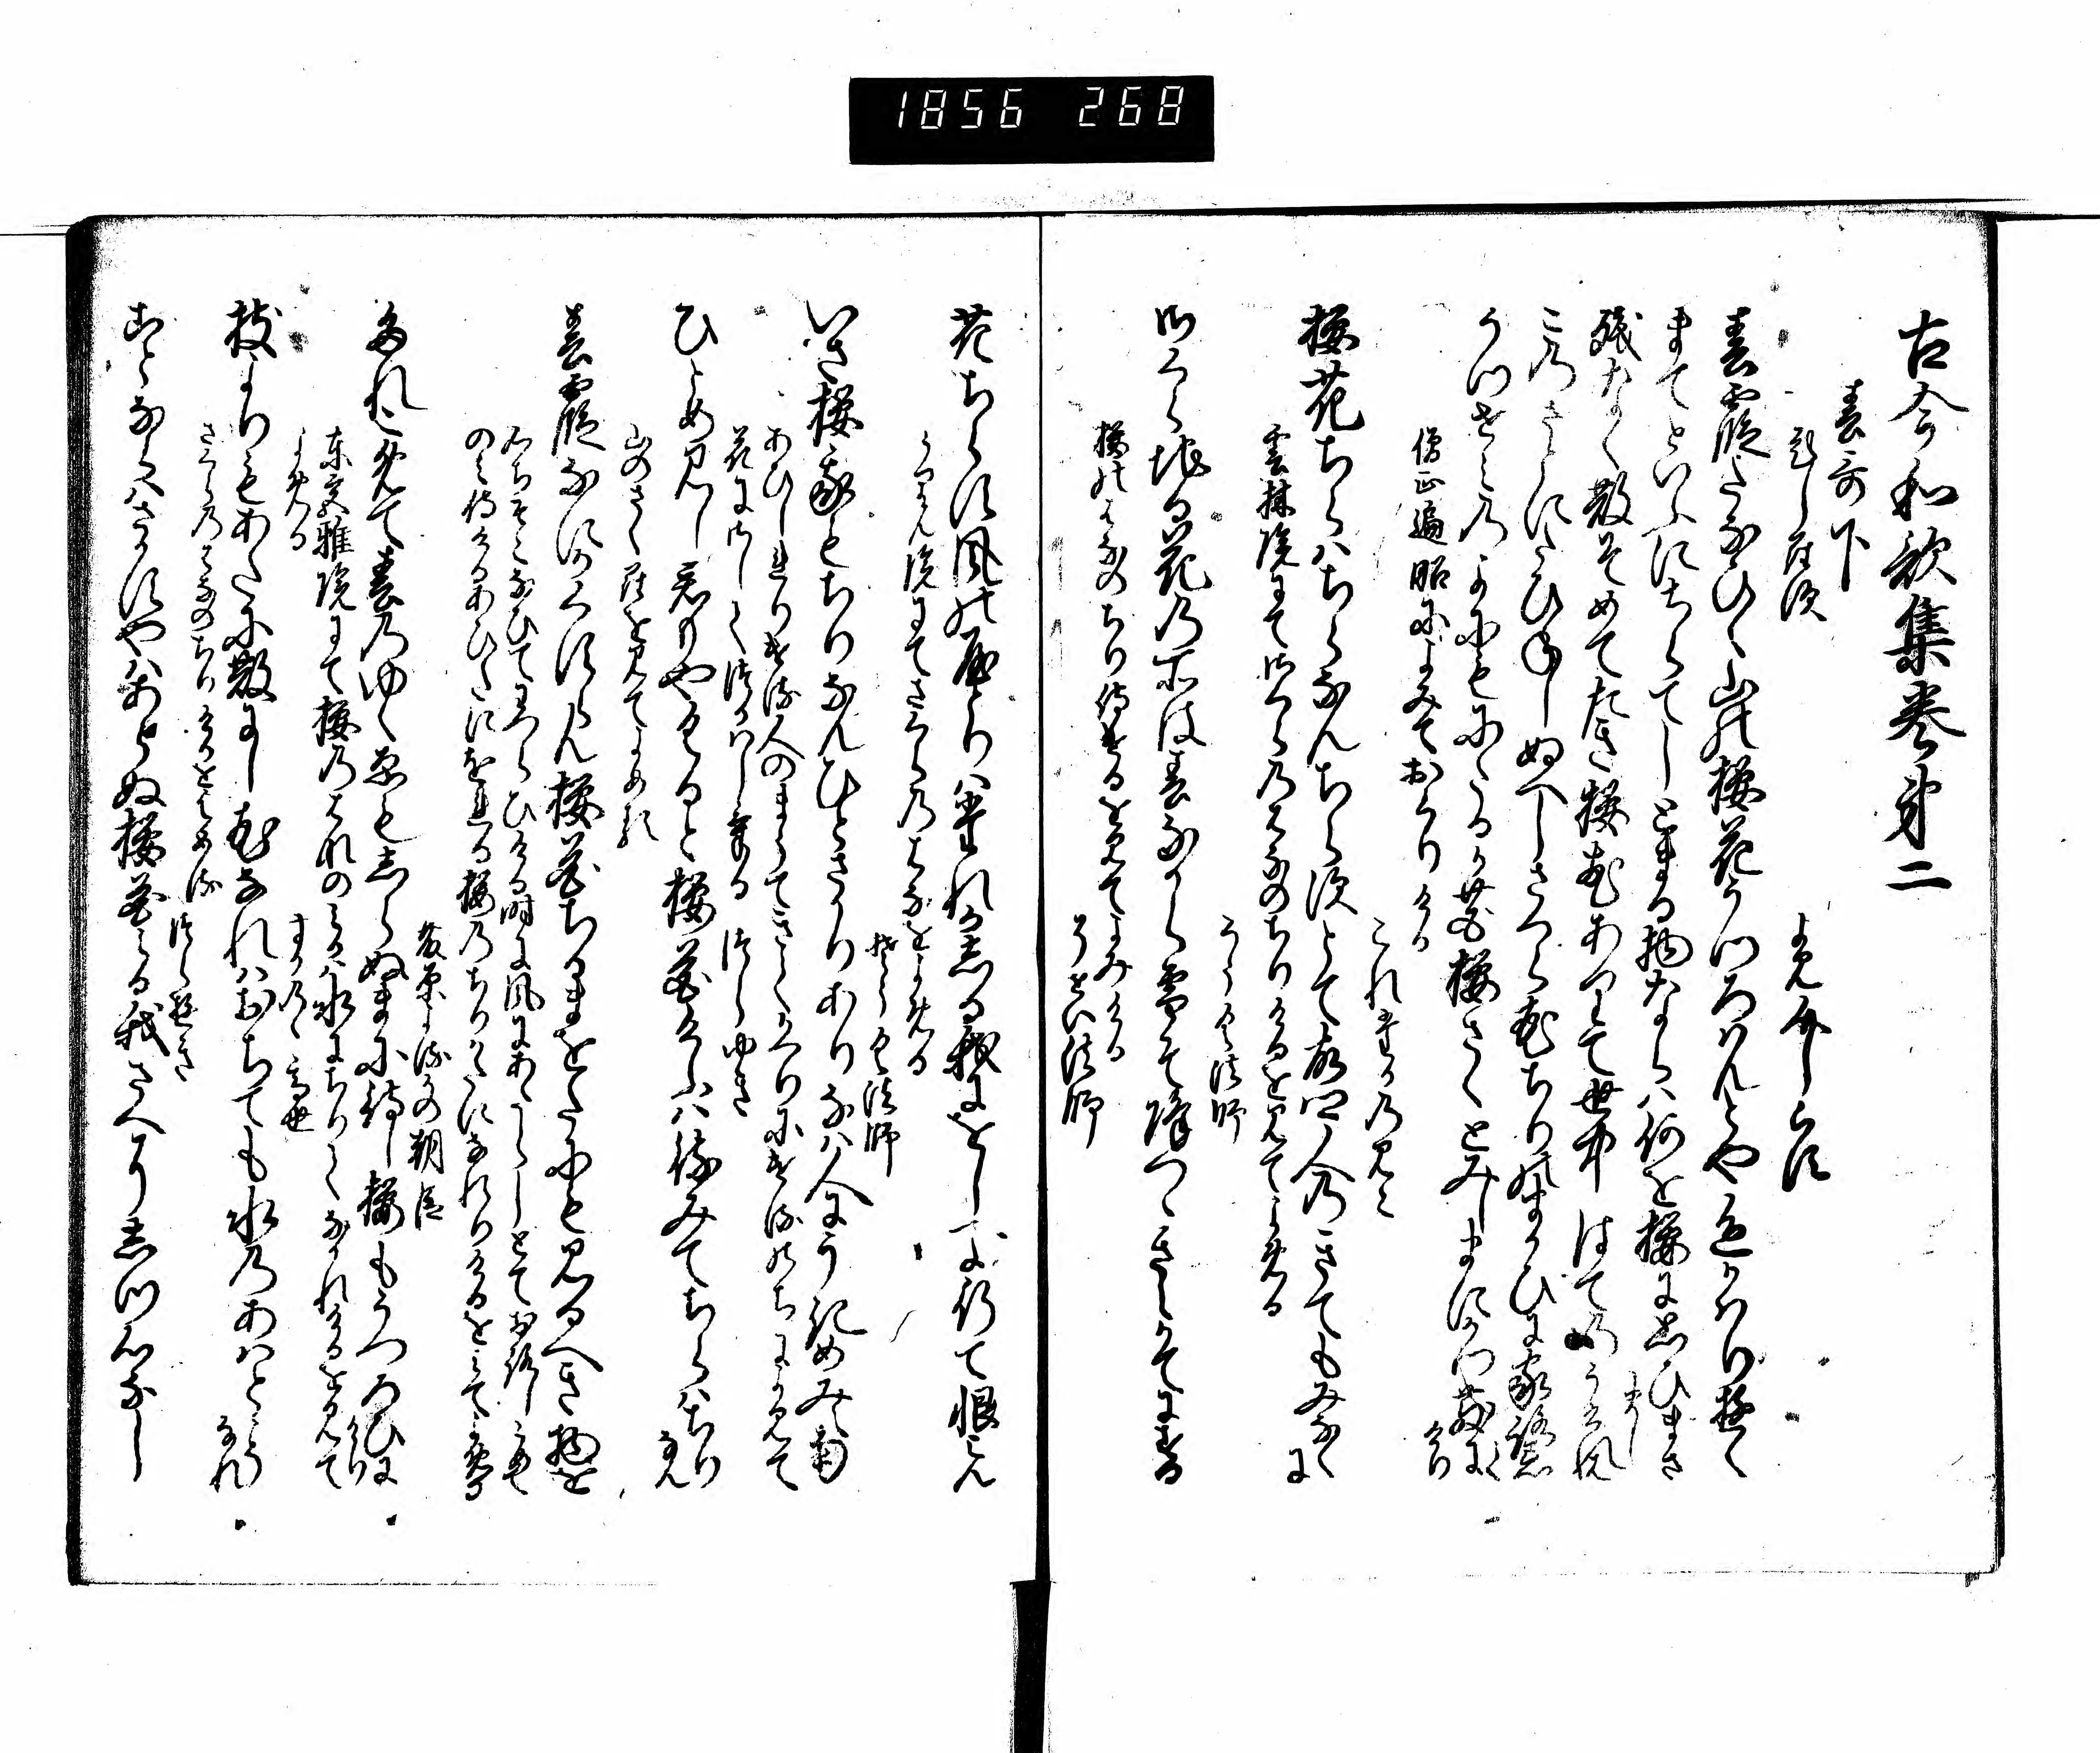 1856 268
古今和歌集巻第二
春哥下
題しらす
よみ人しらす
春霞たなひく山の桜花うつろはんとや色かはり行
まてといふにちらてしとまる物ならは何を桜に思ひまさ
まし
残なく散そめてたき桜花ありて世中はてのうけれは
この さとにたひねしぬへしさくら花ちりのまかひに家路忘
うつせみの よにもにたるか花桜さくとみしまにかつ散に
けり
僧正遍昭によみておくりける
これたかのみこ
桜花ちらはちらなんちらすとて故里人のきてもみなくに
雲林院にてさくらのはなのちりけるを見てよめる
そうく法師
さくらちる花の所は春なから雪そ降つゝきえかてにする
桜のはなのちり侍けるを見てよみける
そせい法師
花ちらす風のやとりは誰かしる我にをしへよ行て恨みん
うりん院にてさくらのはなをよめる
そうく法師
いさ桜我もちりなんひとさかりありなは人にうきめみえ南
あひしれりける人のまうてきてかへりにけるのちによみて
花にさしてつかはしける
つらゆき
ひとめ見し君もやくると桜花けふは待みてちらはちり
なん
山のさくらを見てよめる
春霞なにかくすらん桜花ちるまをたにも見るへき物を
心ちそこなひてわつらひける時に風にあたらしとておろしこめて
のみ侍けるあひたにをれる桜のちりかたになれりけるをみてよめる
藤原よるかの朝臣
たれこめて春のゆくゑもしらぬまに待し桜もうつろひに
けり
東宮雅院にて桜の花のみかは水にちりてなかれけるを見て
よめる
すかのゝ高世
枝よりもあたに散にし花なれはおちても水のあはとこそ
なれ
さくらの花のちりけるをよめる
つらゆき
ことならはさかすやはあらぬ桜花みる我さへにしつ心なし